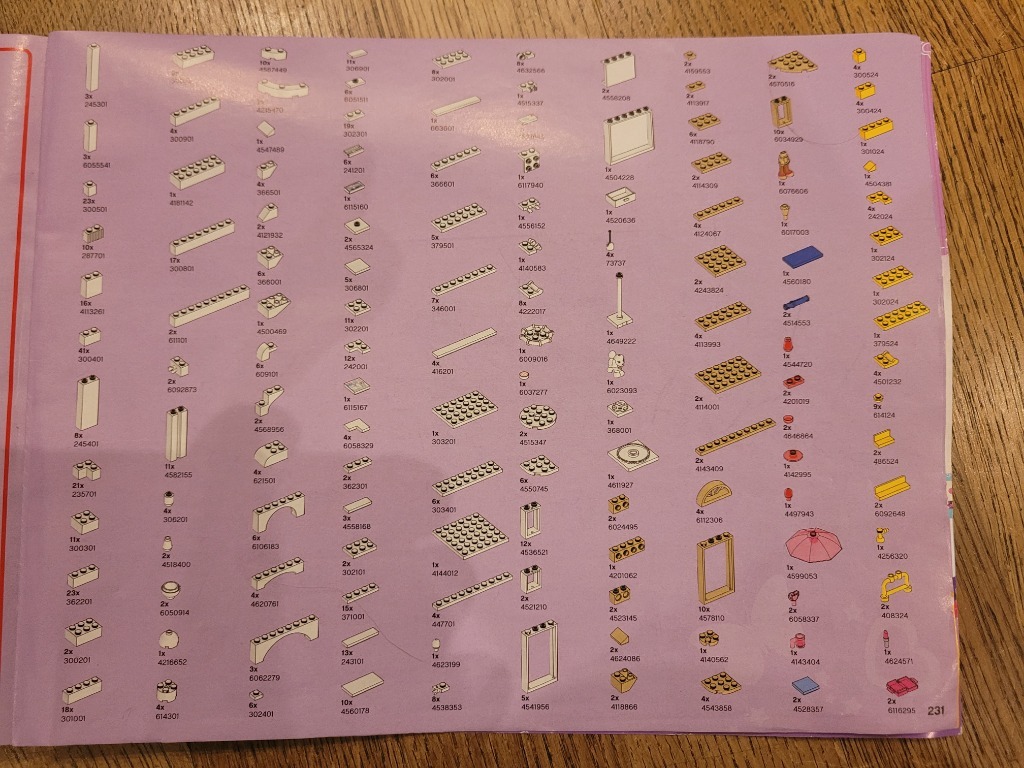 3x
245301
3x
6055541
23x
300501
10x
287701
16x
4113261
41x
300401
8x
245401
21x
235701
11x
300301
23x
362201
2x
300201
18x
301001
4x
300901
1x
4181142
17x
300801
2x
611101
2x
6092873
11x
4582155
4x
306201
2x
4518400
2x
6050914
1x
4216652
4x
614301
10x
4587449
1x
4547489
4x
366501
2x
4121932
6x
366001
1x
4500469
6x
609101
2x
4568956
4x
621501
6x
6106183
4x
4620761
3x
6062279
6x
302401
11x
306901
6051511
19x
302301
6x
241201
1x
6115160
2x
4565324
5x
306801
11x
302201
12x
242001
1x
6115167
4x
6058329
2x
362301
3x
4558168
2x
302101
15x
371001
13x
243101
10x
4560178
8x
302001
1x
663601
6x
366601
5x
379501
7x
346001
4x
416201
1x
303201
6x
303401
1x
4144012
4x
447701
1x
4623199
8x
4538353
4632566
1x
4515337
1x
6117940
1x
4556152
1x
4140583
8x
4222017
1x
6009016
1x
6037277
2x
4515347
6x
4550745
12x
4536521
2x
4521210
5x
4541956
2x
4558208
1x
4504228
1x
4520636
4x
73737
1x
4649222
1x
6023093
1x
368001
1x
4611927
2x
6024495
1x
4201062
2x
4523145
2x
4624086
2x
4118866
2x
4159553
2x
4113917
6x
4118790
2x
4114309
4x
4124067
2x
4243824
4x
4113993
2x
4114001
2x
4143409
4x
6112306
10x
4578110
1x
4140562
4x
4543858
2x
4670516
10x
6034929
1x
6076606
1x
6017003
1x
4560180
2x
4514553
1x
4544720
2x
4201019
2x
4646864
1x
4142995
1x
4497943
1x
4599053
2x
6058337
1x
4143404
2x
4528357
4x
300524
4x
300424
1x
301024
1x
4504381
4x
242024
1x
302124
1x
302024
1x
379524
4x
4501232
9x
614124
2x
486524
2x
6092648
1x
4256320
2x
408324
1x
4624571
2x
6116295
231